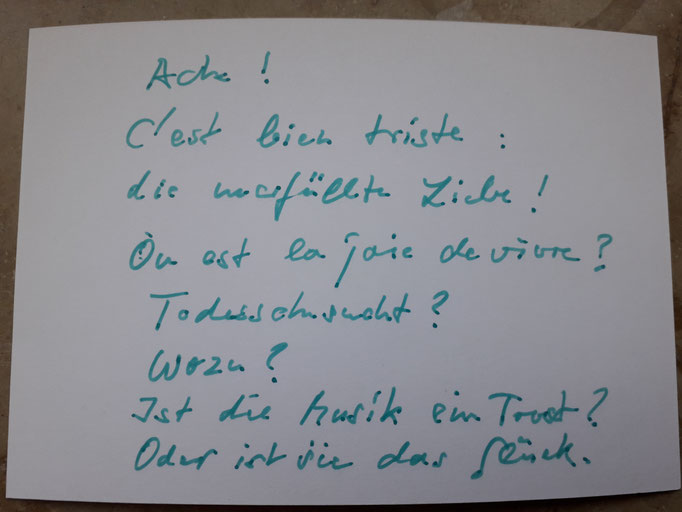 Ach !
C'est bien triste :
die unerfüllte Liebe !
Où est la joie de vivre ?
Todessehnsucht ?
Wozu ?
Ist die Musik ein Trost ?
Oder ist sie das Glück.